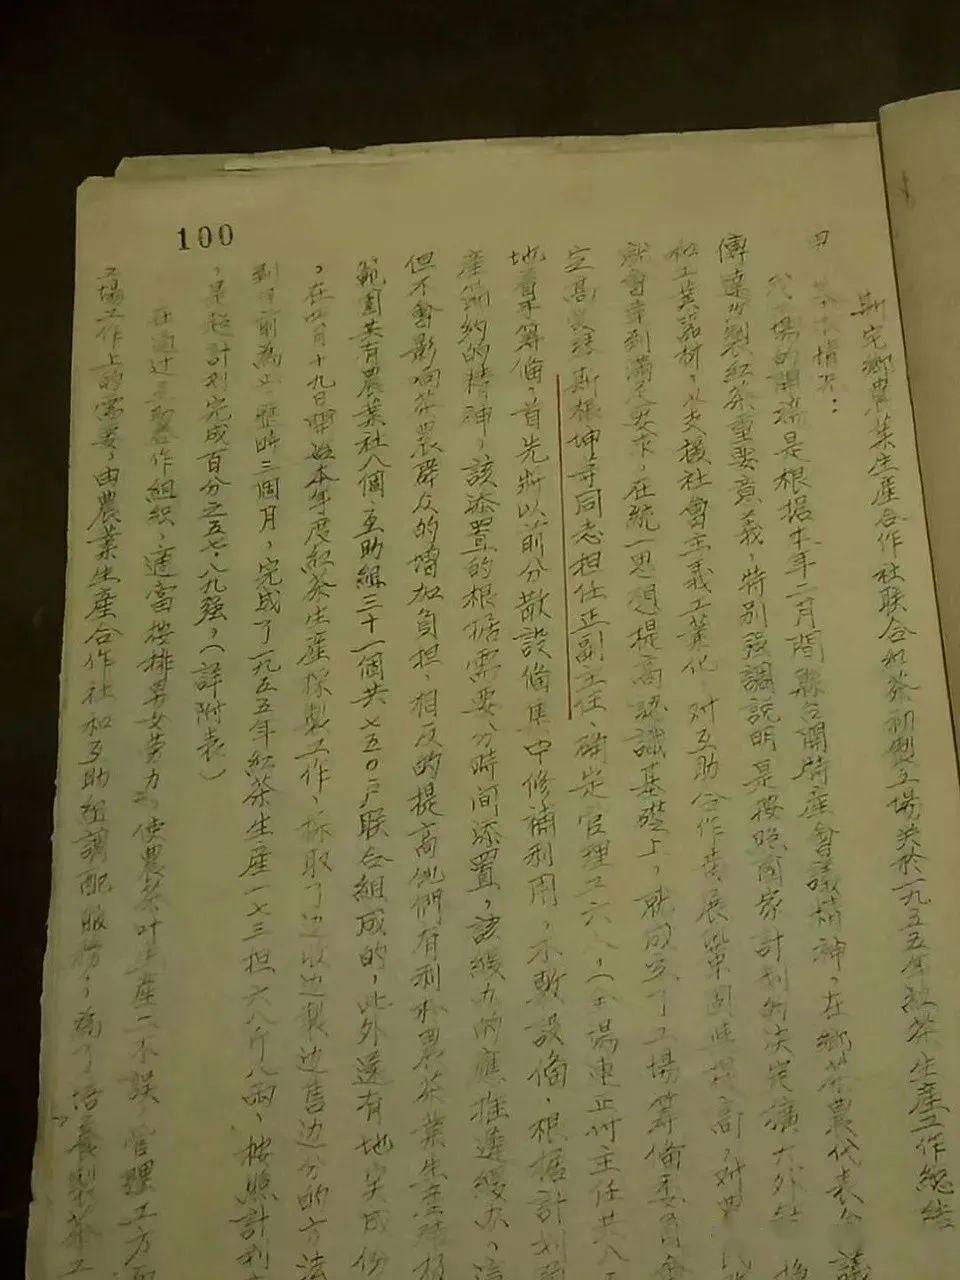 100
斯宅鄉農業生産合作社联合紅茶初製工場关於一九五五年紅茶生産工作總結
基本情况：
場的調流是根据本年二月間縣召開産會議精神，在鄉茶農代表会議
傳達了製紅茶重要意義，特别强調説明是按照國家計划的决定擴大外
和工業器材，以支援社會主義工業化，对互助合作發展巩固提高，对
就會幸到滿足要求，在統一思想提高認識基礎上，就成立了工場筹俻委員會
定 斯根坤等同志担任正副主任、确定官理工六人，（全場連正付主任共八
地着手筹俻，首先将以前分散設俻集中修補利用，不敷設俻，根据計划
産節約的精神，該添置的根据需要分時间添置，該緩办的應推遲緩办，這
但不會影响茶農群众的增加負担，相反的提高他們有利於農茶業生産積极
範圍共有農業社八個互助組三十一個共七五0户联合組成的，此外還有地 成份
，在四月十九日開始本年度紅茶生産採製工作，採取了边收边製边售边分的方法
到 前爲止，歷時三個月，完成了一九五五年紅茶生産一七三担六八斤八兩，按照計划
，是超計划完成百分之五七·八九强，（詳附表）
在通过互助合作組織，適當按排男女劳力，使農茶叶生産二不誤，管理工方面
工場工作上的需要，由農業生産合作社和互助組調配服務，爲了培養製茶工